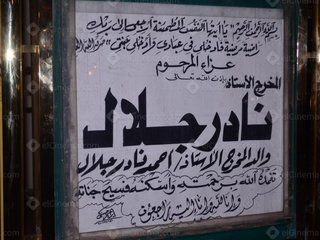 بسم الله الرحمن الرحيم "يا أيتها النفس المطمئنة ارجعي إلى ربك
راضية مرضية فادخلي في عبادي وادخلي جنتي" صدق الله العظيم
عزاء المرحوم
بإذن الله تعالى
المخرج الأستاذ
نادر جلال
والد المخرج الاستاذ/ احمد نادر جلال
تغمده الله برحمته وأسكنه فسيح جناته
وإنا لله وإنا إليه راجعون
elCinema.com